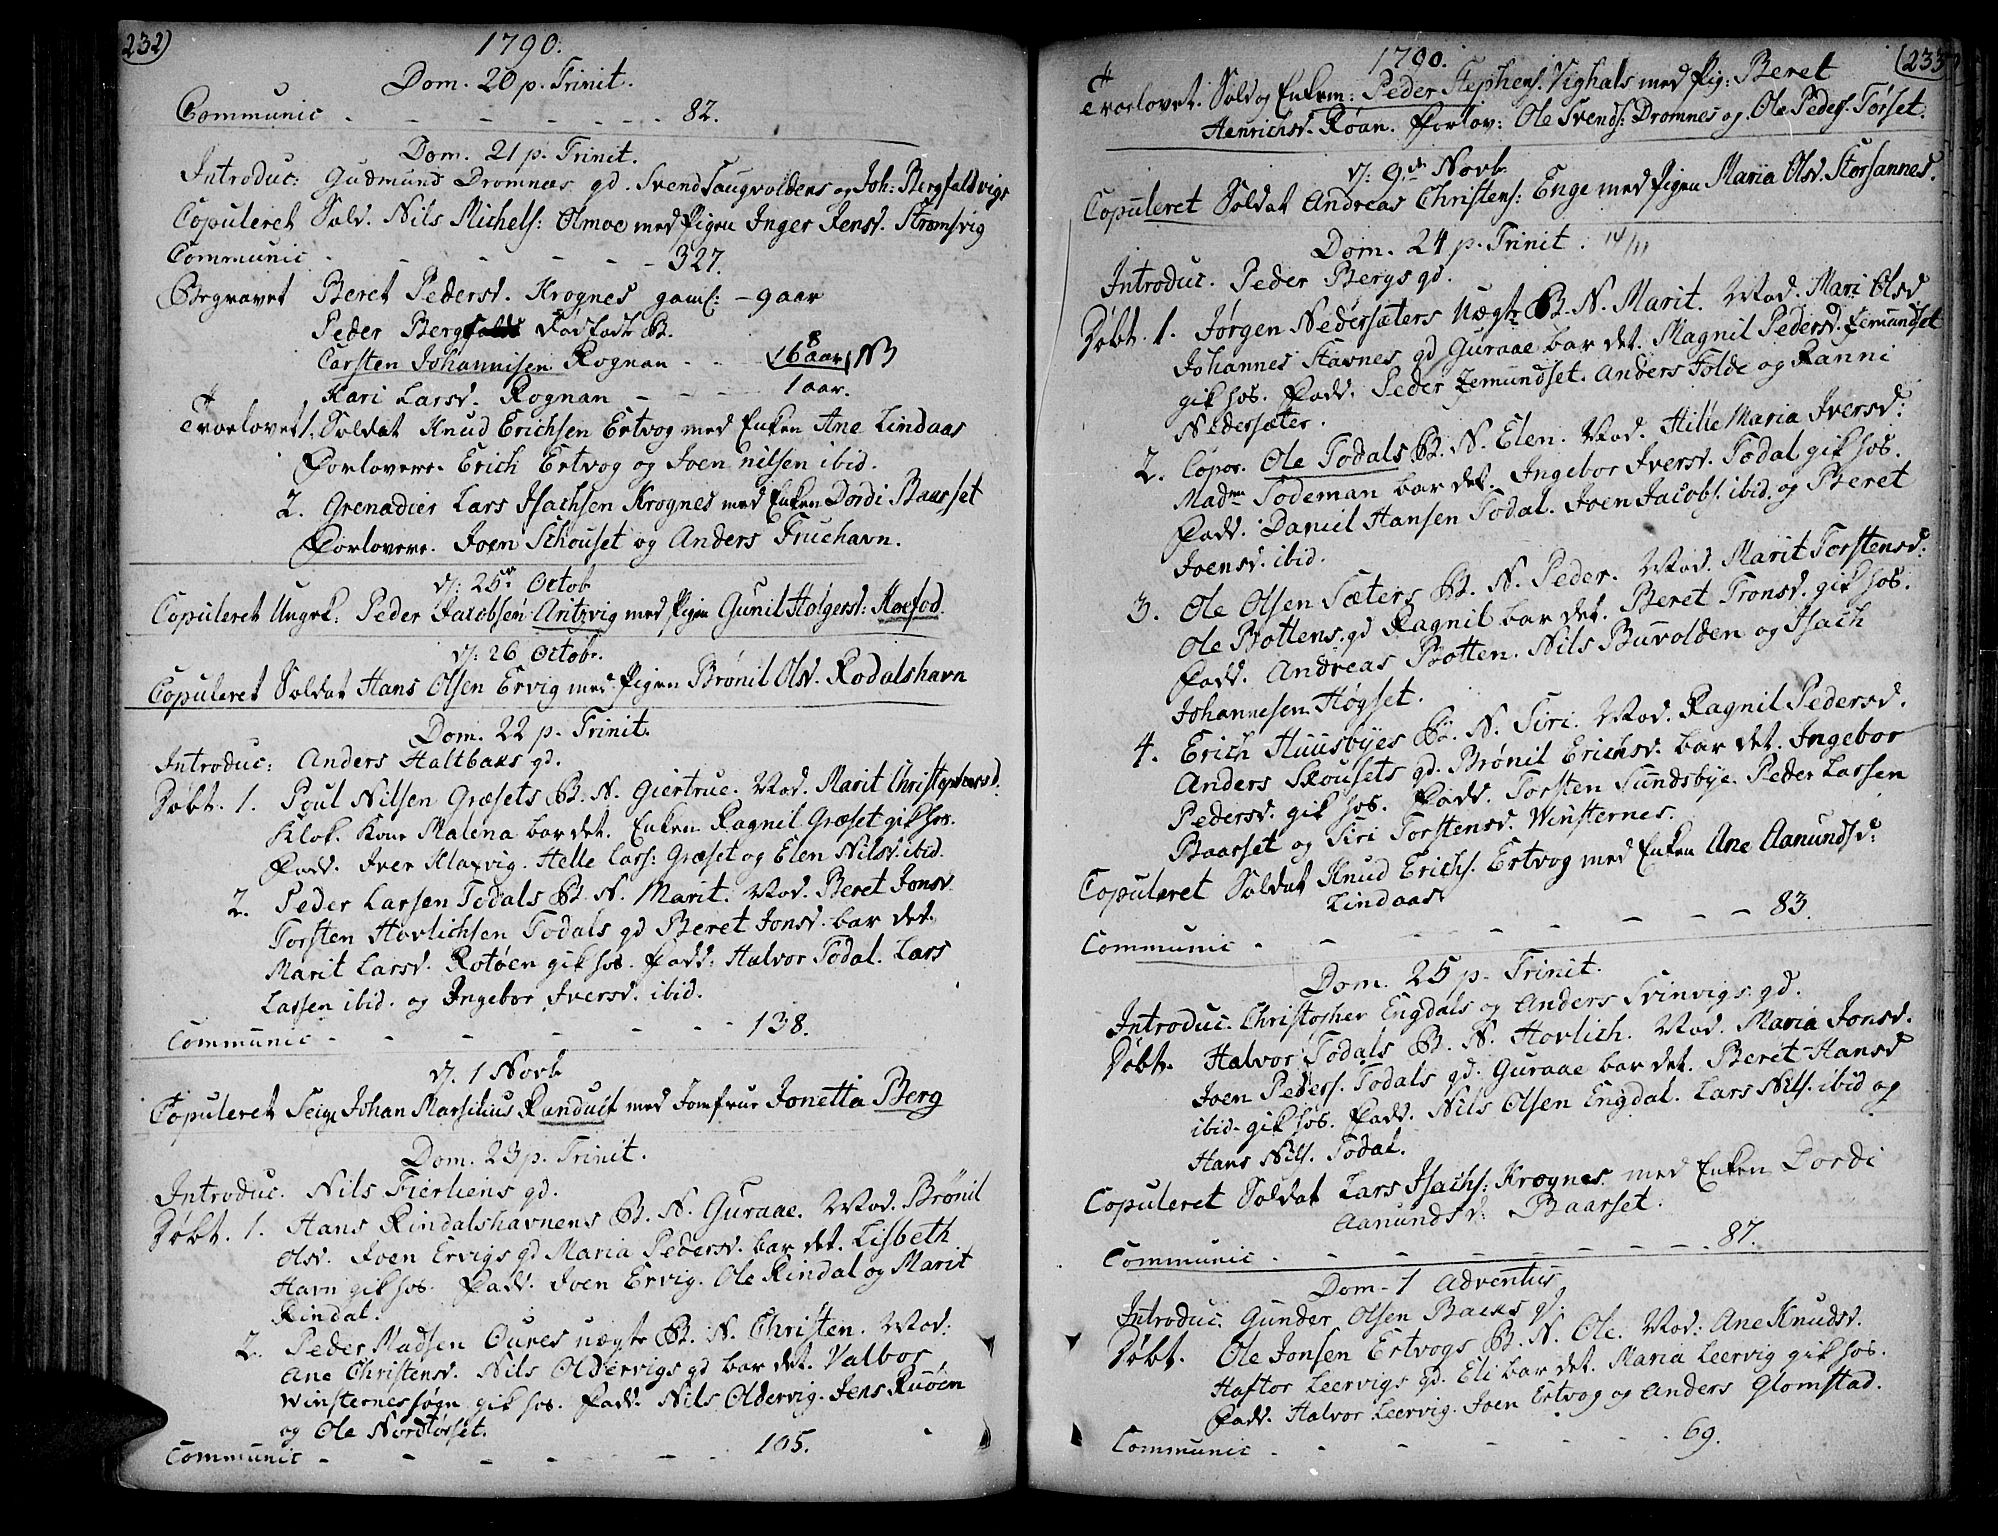 232)
1790.
Dom. 20 p. Trinit.
Communic - - - - - - 82.
Dom. 21 p. Trinit.
Introduc: Gudmund Dromnæs gd. Svend Saugvoldens og Joh: Bergfaldvigs
Copuleret Sold. Nils Michels: Olmoe med Pigen Inger Jensd. Strømsvig
Communic - - - - - - 327.
Begravet Beret Pedersd. Krognes gaml: - 9 aar
Peder Berg Dødfødt B.
Carsten Johannisen Rognan - - 16 aar NB 8
Kari Larsd. Rognan - - - - 1 aar.
Trorlovet 1. Soldat Knud Erichsen Ertvog med Enken Ane Lindaas
Forlovere. Erich Ertvog og Joen Nilsen ibid.
2. Grenadier Lars Isachsen Krognes med Enken Dordi Baarset
Forlovere. Joen Schouset og Anders Fruehavn.
d: 25de Octob
Copuleret Ungk: Peder Jacobsen Aritzvig med Pigen Gunil Holgersd: Korfod.
d: 26 Octobr.
Copuleret Soldat Hans Olsen Ervig med Pigen Brønil Olsd. Rodalshavn
Dom. 22 p. Trinit.
Introduc: Anders Haltbaks gd.
Døbt. 1. Poul Nilsen Græsets B. N. Giertrue. Mod. Marit Christophersd.
Klok. Kone Malena bar det. Enken Ragnil Græset gik hos.
Fadd. Iver Klaxvig. Helle Lars: Græset og Elen Nilsd. ibid.
2. Peder Larsen Todals B. N. Marit. Mod. Beret Jonsd.
Torsten Hovlichsen Todals gd Beret Jonsd. bar det.
Marit Larsd. Rotøen gik hos. Fadd: Halvor Todal. Lars
Larsen ibid. og Ingebor Iversd. ibid.
Communic - - - - - - 138.
d. 1 Novb
Copuleret Seigr Johan Marsilius Randuit med Jomfrue Jonetta Berg
Dom. 23 p. Trinit.
Introduc. Nils Fierliens gd.
Døbt. 1. Hans Rindalshavnens B. N. Guraae. Mod. Brønil
Olsd. Joen Ervigs gd Maria Pedersd. bar det. Lisbeth
Havn gik hos. Fadd. Joen Ervig. Ole Rindal og Marit
Rindal.
2. Peder Madsen Oures uægte B. N. Christen. Mod:
Ane Christensd. Nils Oldervigs gd bar det. Valbor
Winsternes søgn gik hos. Fadd. Nils Oldervig. Jens Ruøen
og Ole Nordtørset.
Communic - - - - - - 105.
1790.
(233
Trorlovet. Sold og Enkem: Peder Stephens. Vighals med Pig: Beret
Henrichsd. Roan. Forlov: Ole Svends: Dromnes og Ole Peders. Torset.
d: 9de Novb
Copuleret Soldat Andreas Christens: Enge med Pigen Maria Olsd. Storsannes.
Dom. 24 p. Trinit. 14/11
Introduc. Peder Bergs gd.
Døbt. 1. Jørgen Nedersæters Uægte B. N. Marit. Mod. Mari Olsd
Johannes Stavnes gd Guraae bar det. Magnil Pedersd. Zemundset
gik hos. Fadd. Peder Zemundset. Anders Folde og Ranni
Nedersæter.
2. Copor. Ole Todals B. N. Elen. Mod. Hille Maria Iversd:
Madme Todeman bar det. Ingebor Iversd. Todal gik hos.
Fadd. Daniel Hansen Todal. Joen Jacobs. ibid. og Beret
Joensd. ibid.
3. Ole Olsen Sæters B. N. Peder. Mod. Marit Torstensd:
Ole Bottens gd Ragnil bar det. Beret Tronsd. gik hos.
Fadd. Andreas Botten. Nils Buvolden og Isach
Johannesen Høgset.
4. Erich Huusbyes B. N. Siri. Mod. Ragnil Pedersd.
Anders Skousets gd. Brønil Erichsd. bar det. Ingebor
Pedersd. gik hos. Fadd. Torsten Sundsbye. Peder Larsen
Baarset og Siri Torstensd. Winsternes.
Copuleret Soldat Knud Erichs. Ertvog med Enken Ane Aanundsd:
Lindaas
Communic - - - - - - - 83.
Dom. 25 p. Trinit.
Introduc. Christopher Engdals og Anders Svinvigs gd.
Døbt. Halvor Todals B. N. Hovlich. Mod. Maria Jonsd.
Joen Peders. Todals gd. Guraae bar det. Beret Hansd
ibid. gik hos. Fadd. Nils Olsen Engdal. Lars Nils. ibid og
Hans Nils. Todal.
Copuleret Soldat Lars Isachs: Krognes med Enken Dordi
Aanundsd: Baarset.
Communic - - - - - - - 87.
Dom. 1 Adventus
Introduc. Gunder Olsen Backs gd.
Døbt. Ole Jonsen Ertvogs B. N. Ole. Mod: Ane Knudsd.
Haftor Leervigs gd. Eli bar det. Maria Leervig gik hos.
Fadd. Halvor Leervig. Joen Ertvog og Anders Glomstad.
Communic - - - - - - - 69.